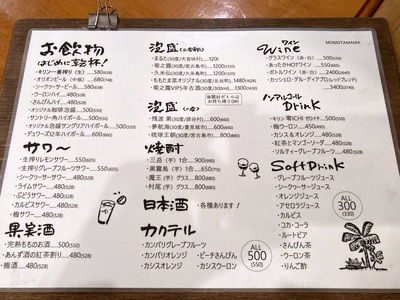 MOMOTAMAMA
お飲物
はじめに乾杯!
・キリン一番搾り(生)……580(638)
・オリオンビール(小瓶)……680(748)
・シークヮーサービール……580(638)
・ウーロンハイ……480(528)
・さんぴんハイ……480(528)
・オリジナル珈琲泡盛……500(550)
・サントリー角ハイボール……500(550)
・オリジナル泡盛サングリアハイボール……500(550)
・デュワーズ12年ハイボール……600(660)
サワー
・生搾りレモンサワー……550(605)
・生搾りグレープフルーツサワー……550(605)
・シークヮーサーサワー……480(528)
・ライムサワー……480(528)
・ぶどうサワー……480(528)
・カルピスサワー……480(528)
・梅干しサワー……480(528)
果実酒
・完熟もものお酒……500(550)
・あんず酒の紅茶割り……480(528)
・梅酒……480(528)
泡盛
・まるた(30度/大宜味村)
・菊之露(30度/宮古島市)
・久米仙(30度/久米島町)
・ももたま菜オリジナル(30度/北谷町)
・菊之露VIP5年古酒(30度/宮古島市)
※開封ボトルは
お持ち帰りOK!
泡盛
・残波 黒(30度/読谷村)……600(660)
・夢航海(30度/豊見城市)……600(660)
・琉球王朝(30度/宮古島市)……600(660)
焼酎
・三岳(芋)1合……900(990)
・黒霧島(芋)1合
・魔王(芋)グラス……800(880)
・村尾(芋)グラス……800(880)
日本酒・各種あります!
カクテル
・カンパリグレープフルーツ
・カンパリオレンジ
・ピーチさんぴん
・カシスオレンジ
・カシスウーロン
ALL
500
(550)
ワイン
Wine
・グラスワイン(赤・白)……500(550)
・あったかHOTワイン……600(660)
・ボトルワイン(赤・白)……2400(2640)
ノンアルコール
Drink
・キリン 零ICHI ゼロイチ……500(550)
・梅ウーロン……450(495)
・カシス&オレンジ……480(528)
・紅茶とマンゴーソーダ……480(528)
・ソルティーグレープフルーツ……480(528)
Soft Drink
・グレープフルーツジュース
・シークヮーサージュース
・オレンジジュース
・アセロラジュース
・カルピス
・コカ・コーラ
・ルートビア
・さんぴん茶
・ウーロン茶
・りんご酢
ALL
300
(330)